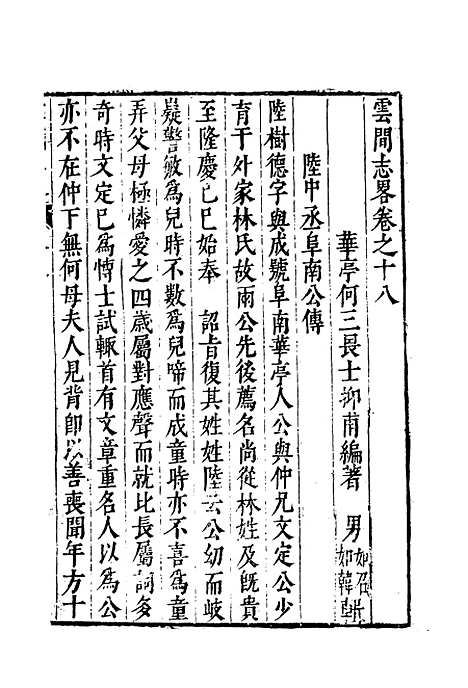 雲間志畧卷之十八
華亭何三畏士抑甫編著 男
陸中丞阜南公傳
陸樹德字與成號阜南華亭人公與仲兄文定公少
育于外家林氏故兩公先後薦名尚從林姓及既貴
至隆慶己巳始奉 詔旨復其姓姓陸云公幼而岐
嶷警敏為兒時不數為兒啼而成童時亦不喜為童
弄父母極憐愛之四歲屬對應聲而就比長屬詞多
奇時文定已為博士試輒首有文章重名人以為公
亦不在仲下無何母夫人見背即以善喪聞年方十